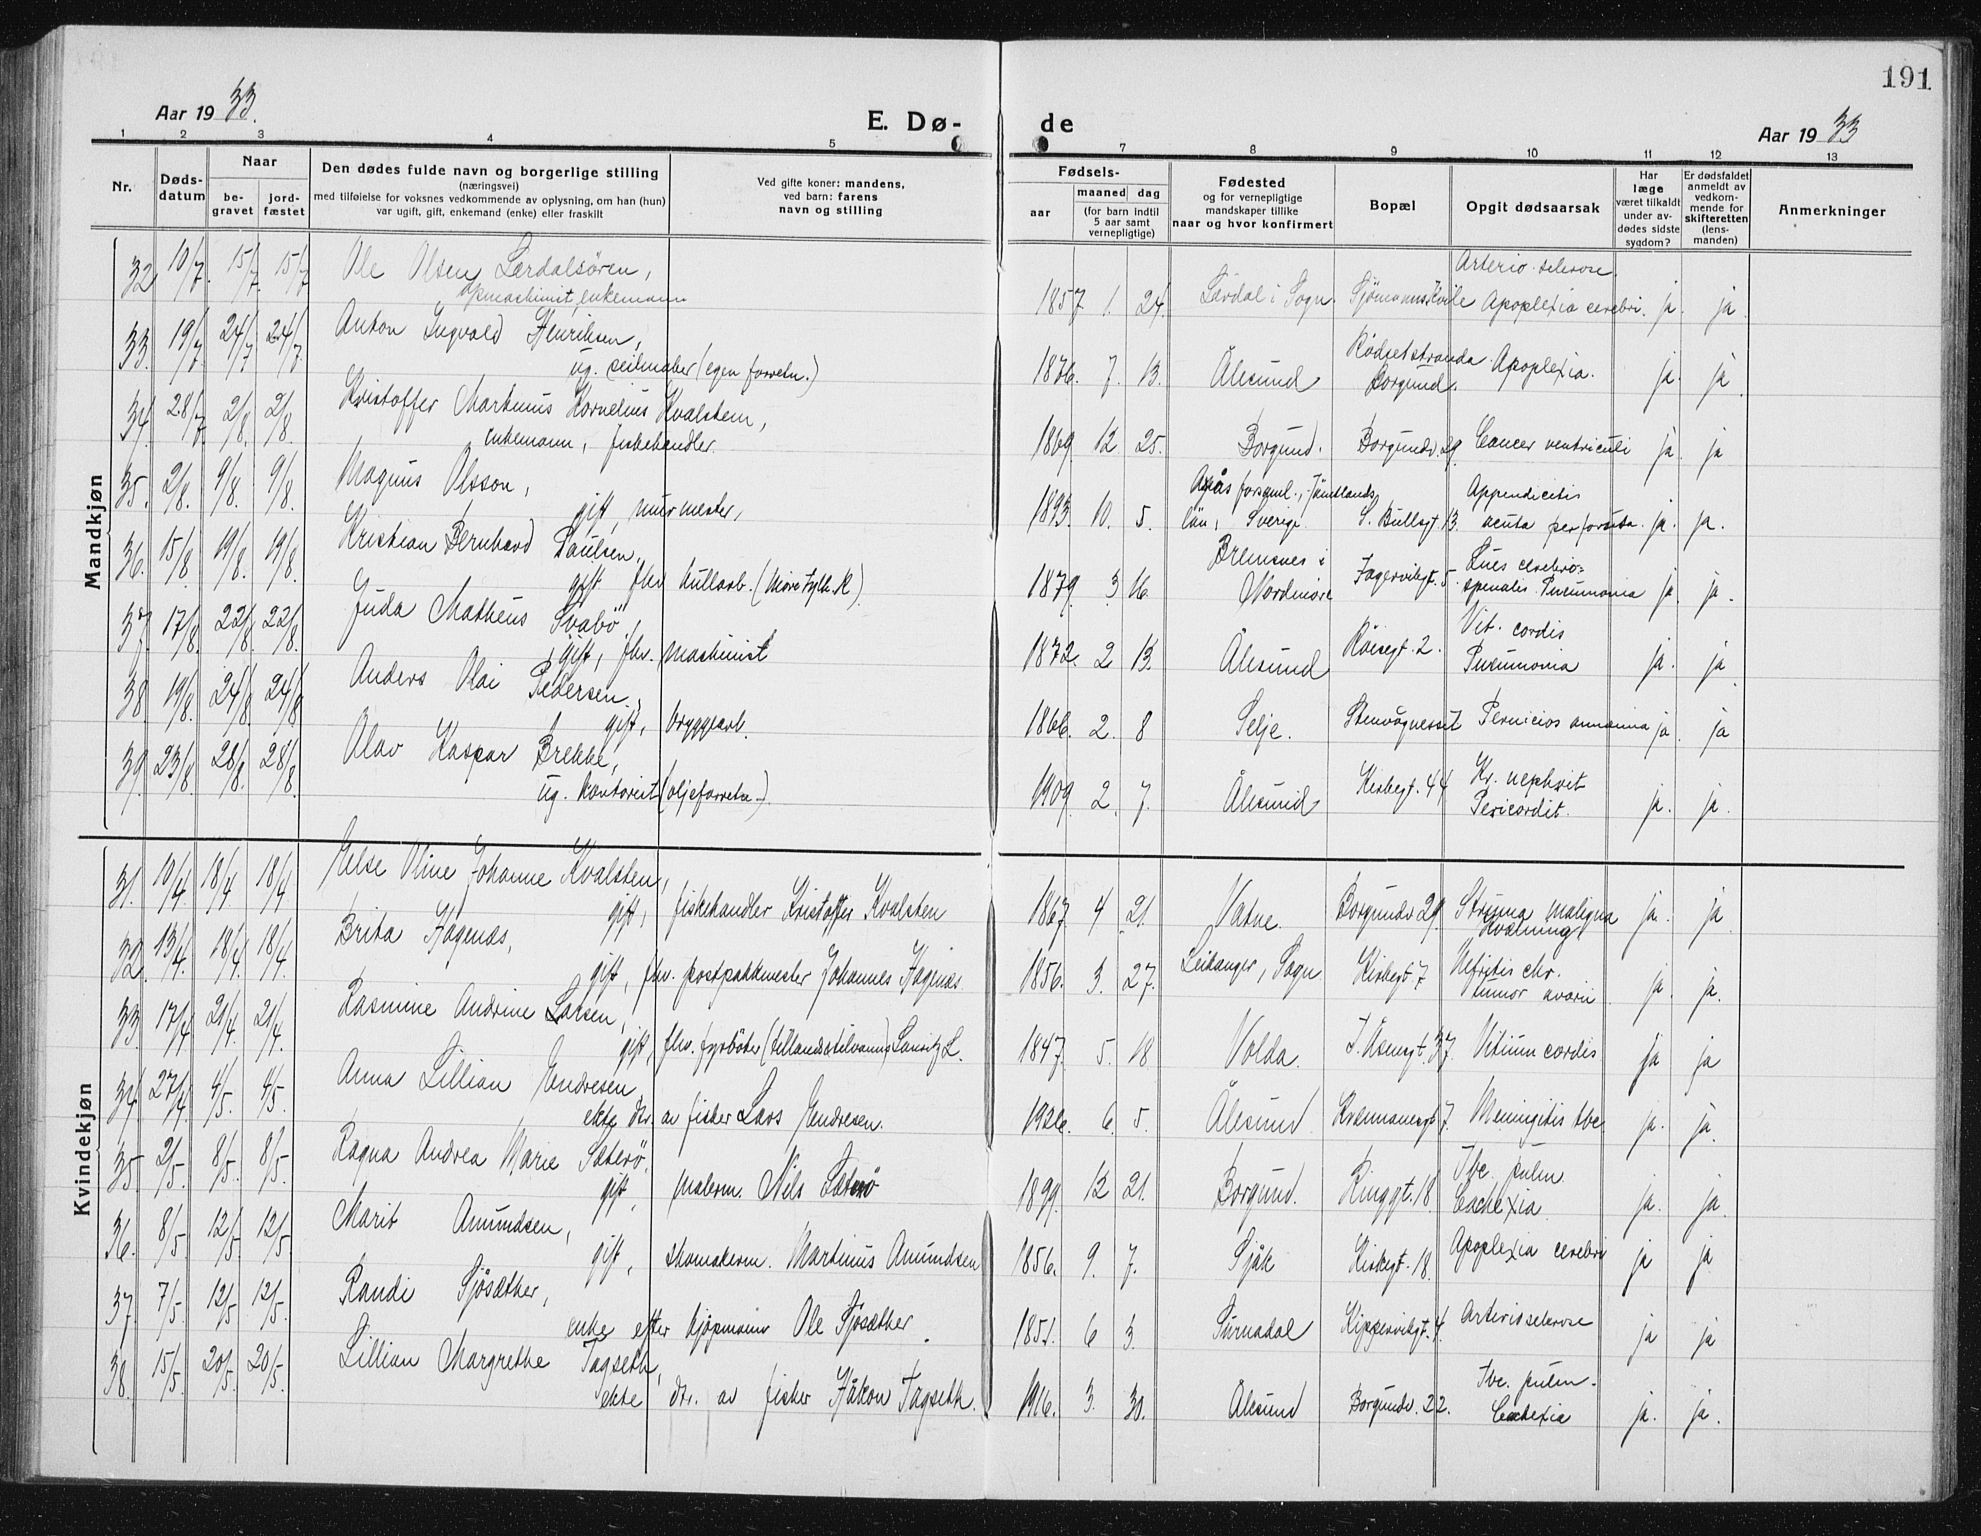 191
Aar 1933.
E. Dø-
de
Aar 1933
1 2 3 4 5 7 8 9 10 11 12 13
Nr.
Døds-
datum
Naar
be-
gravet
jord-
fæstet
Den dødes fulde navn og borgerlige stilling
(næringsvei)
med tilføielse for voksnes vedkommende av oplysning, om han (hun)
var ugift, gift, enkemand (enke) eller fraskilt
Ved gifte koner: mandens,
ved barn: farens
navn og stilling
Fødsels-
aar
maaned dag
(for barn indtil
5 aar samt
vernepligtige)
Fødested
og for vernepligtige
mandskaper tillike
naar og hvor konfirmert
Bopæl
Opgit dødsaarsak
Har
læge
været tilkaldt
under av-
dødes sidste
sygdom?
Er dødsfaldet
anmeldt av
vedkom-
mende for
skifteretten
(lens-
manden)
Anmerkninger
Mandkjøn
32 10/7. 15/7. 15/7 Ole Olsen Lærdalsøren, Arterio-sclerose
enkemann 1857 1. 24. Lærdal i Sogn Sjømannskvile Apoplexia cerebri. ja. ja
33. 19/7. 24/7 24/7 Anton Ingvald Henriksen,
ug. seilmaker (egen forretn.) 1876. 7. 13. Ålesund Rødsetstranda Borgund. Apoplexia. ja. ja
34. 28/7 2/8. 2/8. Kristoffer Martinus Kornelius Kvalsten,
enkemann, fiskehandler. 1869. 12 25. Borgund. Borgundv. 29. Cancer ventriculi ja. ja
35. 2/8. 9/8. 9/8. Magnus Olsson,
gift, murmester, 1893. 10. 5. forsaml., Jämtlands län, Sverige. S. Bullsgt. 13. Appendicitis acuta perforata. ja. ja.
36. 15/8. 19/8. 19/8. Kristian Bernhard Paulsen,
gift, fhv. 1879. 3 16. Bremsnes i Nordmøre 5. Lues cerebro-
spinalis. Pneumonia ja. ja.
37. 17/8. 22/8. 22/8. Juda Matheus Svabø,
gift, fhv. maskinist 1872. 2 13. Ålesund Røisegt. 2. Vit. cordis
Pneumonia ja. ja
38. 19/8. 24/8. 24/8. Anders Olai Pedersen,
gift, bryggearb. 1866. 2. 8 Selje. Stenvågneset Pernicios ja. ja
39. 23/8. 28/8. 28/8. Olav Kaspar Brekke,
ug. kontorist (oljeforretn.) 1909. 2. 7. Ålesund Kirkegt. 44 Kr. nephrit
Pericardit. ja. ja.
Kvindekjøn
31. 10/4. 18/4. 18/4 Else Oline Johanne Kvalsten,
gift, fiskehandler Kristoffer Kvalsten 1867 4 21. Vatne. Borgundv. 29. Struma maligna
Kvælning ja. ja
32. 13/4. 18/4. 18/4. Brita Hagenæs,
gift, fhv. postpakkmester Johannes Hagenæs 1856. 3. 27. Leikanger, Sogn Kirkegt. 7 Nefritis chr.
tumor ovarii ja. ja.
33. 17/4 21/4. 21/4. Rasmine Andrine Larsen,
gift, fhv. fyrbøter L. 1847. 5. 18 Volda. I. Åsensgt. 37. Vitium cordis ja ja
34. 27/4 4/5. 4/5. Anna Lillian Endresen
ekte dtr. av fisker Lars Endresen. 1926. 6. 5. Ålesund 7. Meningitis tbc. ja. ja.
35. 2/5. 8/5. 8/5. Ragna Andrea Marie Sæterø,
gift, malerm. Nils Sæterø 1899. 12 21. Borgund. Ringgt. 18. Tbc. pulm
Cachexia ja. ja.
36. 8/5. 12/5. 12/5. Marit Amundsen,
gift, skomakerm. Martinus Amundsen 1856. 9. 7. Sjåk Kirkegt. 18. Apoplexia cerebri ja ja
37. 7/5. 12/5. 12/5. Randi Sjøsæther,
enke efter kjøpmann Ole Sjøsæther. 1851. 6 3. Surnadal Kippervikgt. 4. Arteriosclerose ja ja
38. 15/5. 20/5. 20/5. Lillian Margrethe Tagseth,
ekte dtr. av fisker Håkon Tagseth. 1916. 3. 30. Ålesund Borgundv. 22. Tbc. pulm.
Cachexia ja. ja.